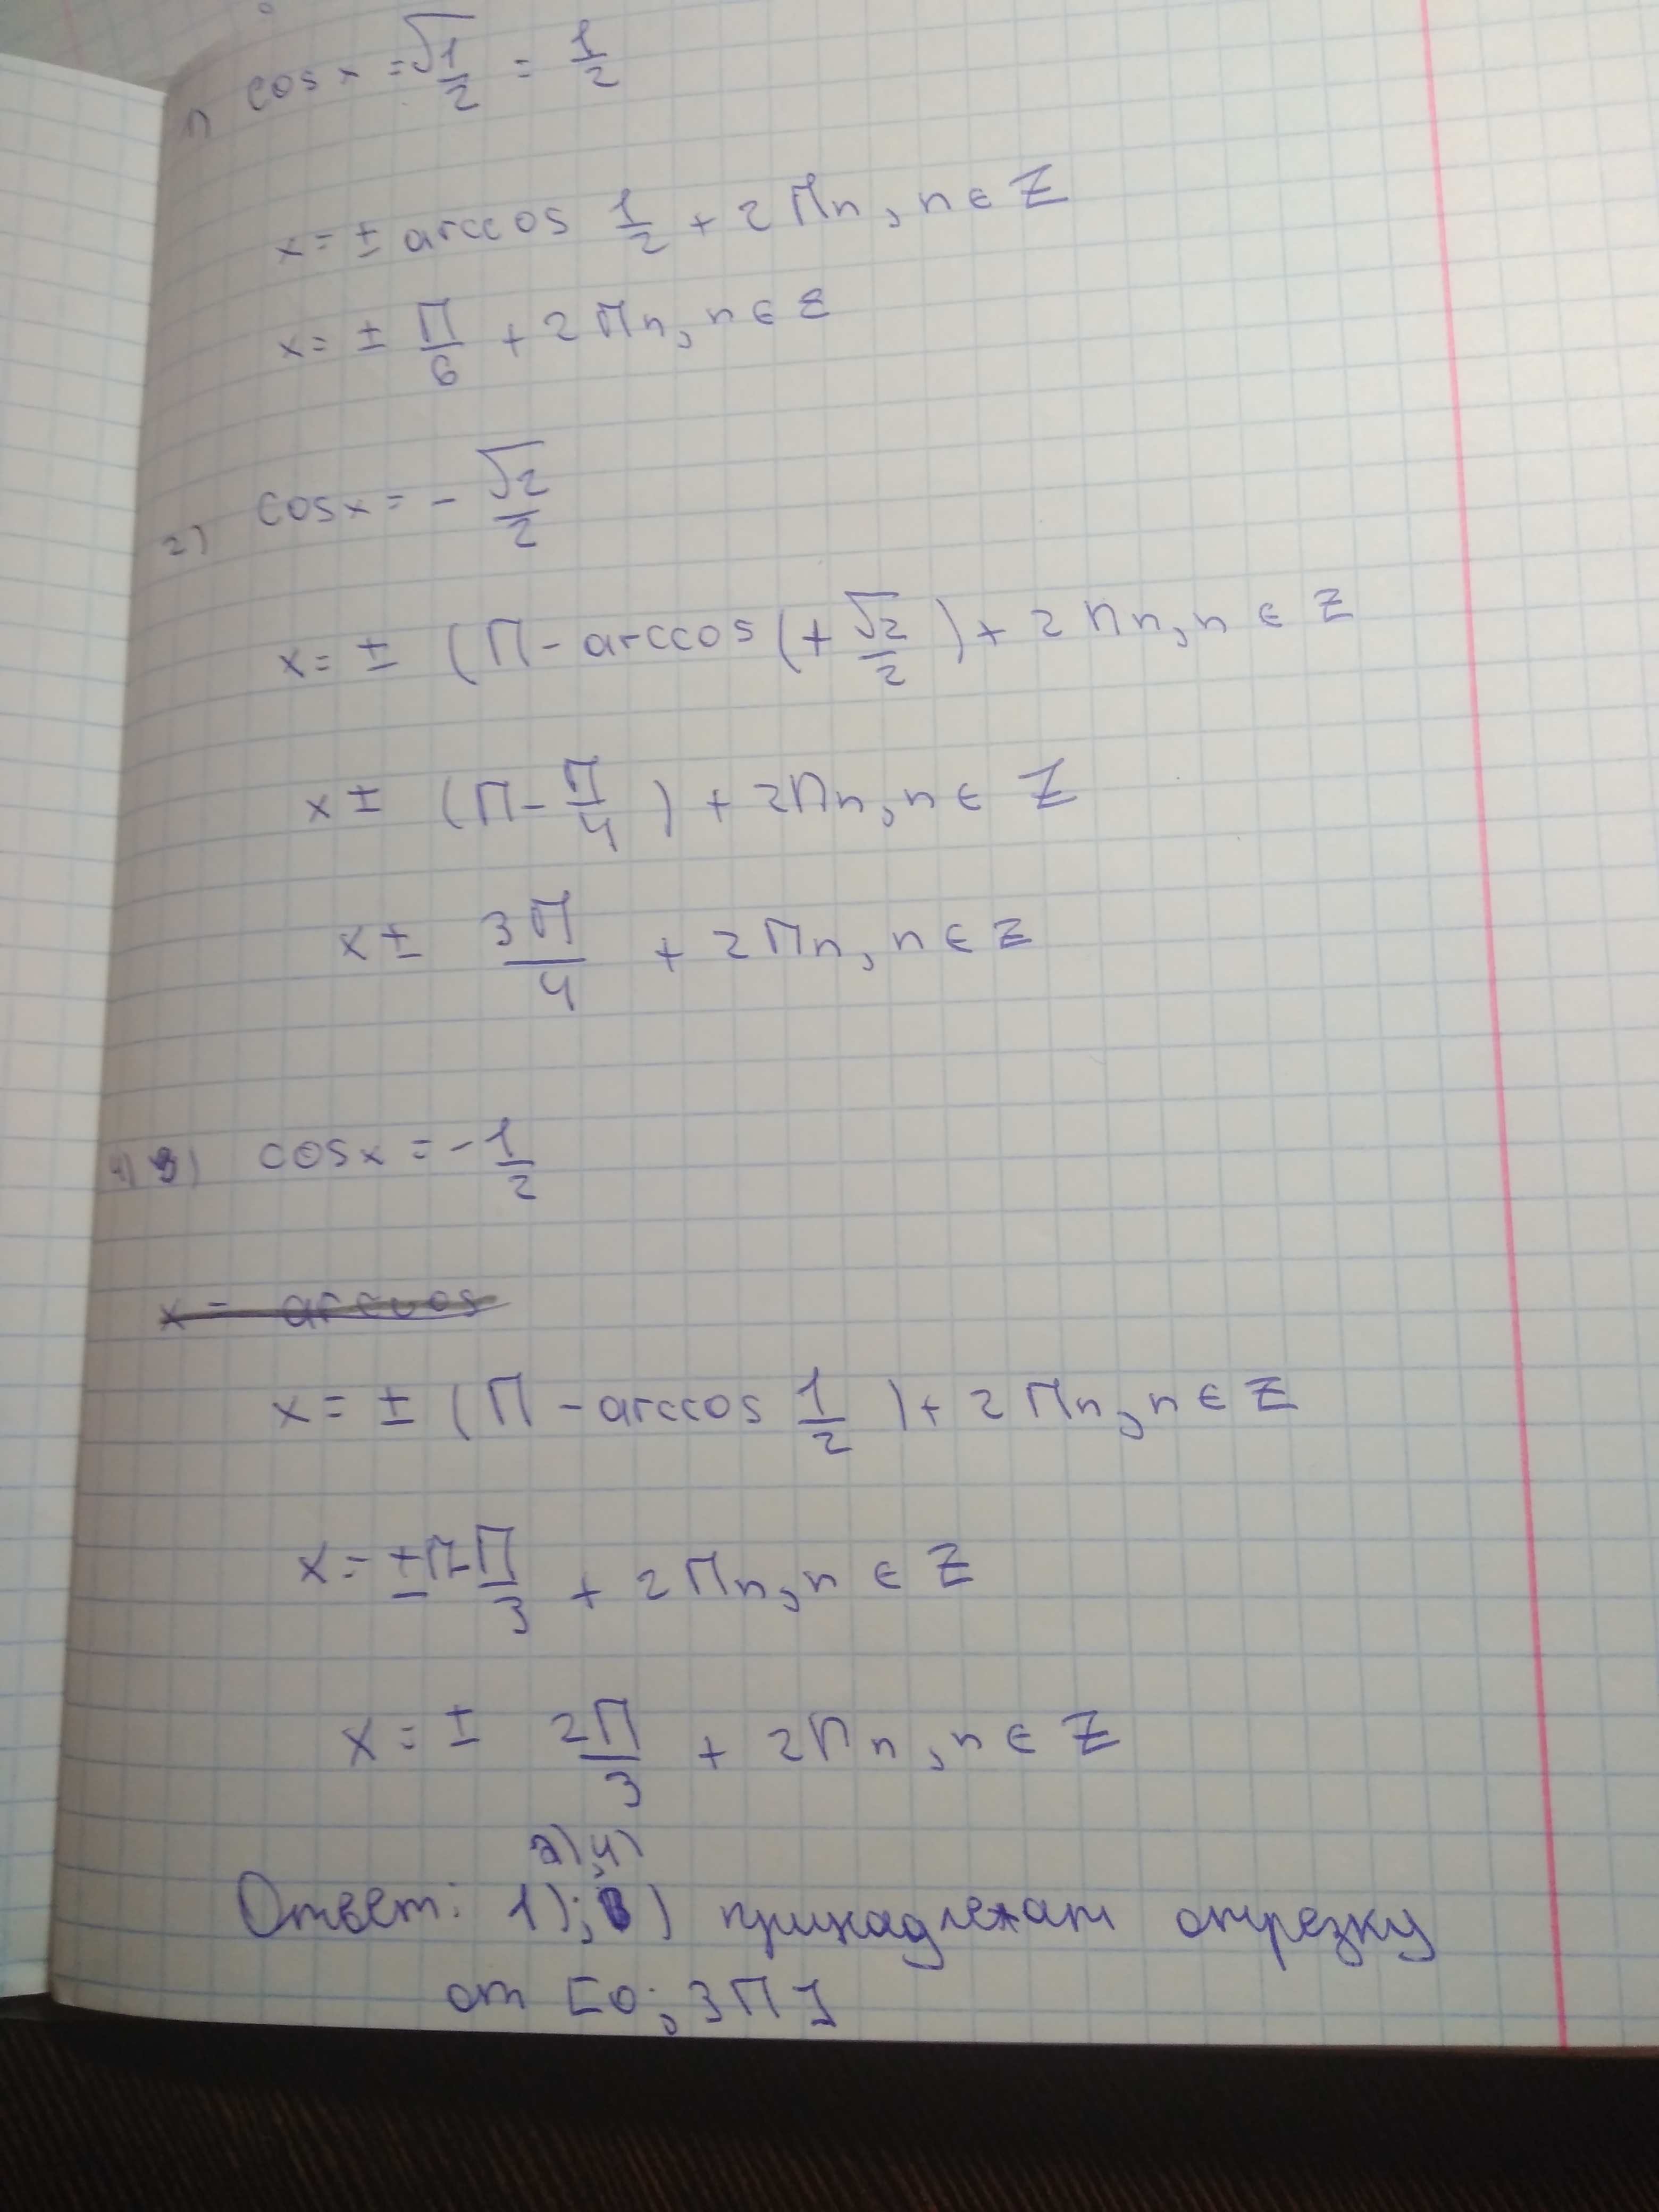 1) cos x = √1/2 = 1/2
x = ± arccos 1/2 + 2πn, n ∈ Z
x = ± π/6 + 2πn, n ∈ Z
2) cos x = - √2/2
x = ± (π - arccos (+ √2/2) + 2πn, n ∈ Z
x ± (π - π/4) + 2πn, n ∈ Z
x ± 3π/4 + 2πn, n ∈ Z
4) 3) cos x = - 1/2
x = arccos
x = ± (π - arccos 1/2) + 2πn, n ∈ Z
x = ± π - π/3 + 2πn, n ∈ Z
x = ± 2π/3 + 2πn, n ∈ Z
2); 4)
Ответ: 1); ) принадлежат отрезку
от [0; 3π]